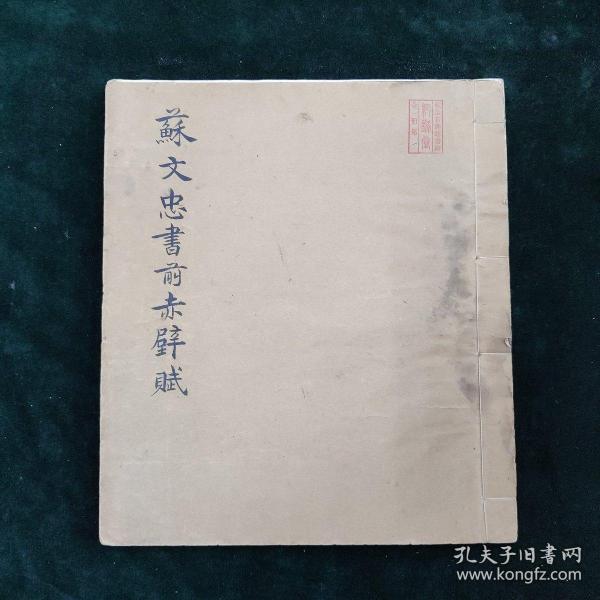 蘇文忠書前赤壁賦
孔夫子旧书网
www.kongfz.com